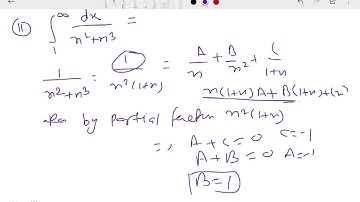 11) ∫₁^∞ dx/(n²+n³) =
1/(n²+n³) = 1/(n²(1+n)) = A/n + B/n² + C/(1+n)
n(1+n)A + B(1+n) + Cn²
by partial n²(1+n)
=> A+C=0 C=-1
A+B=0 A=-1
B=1